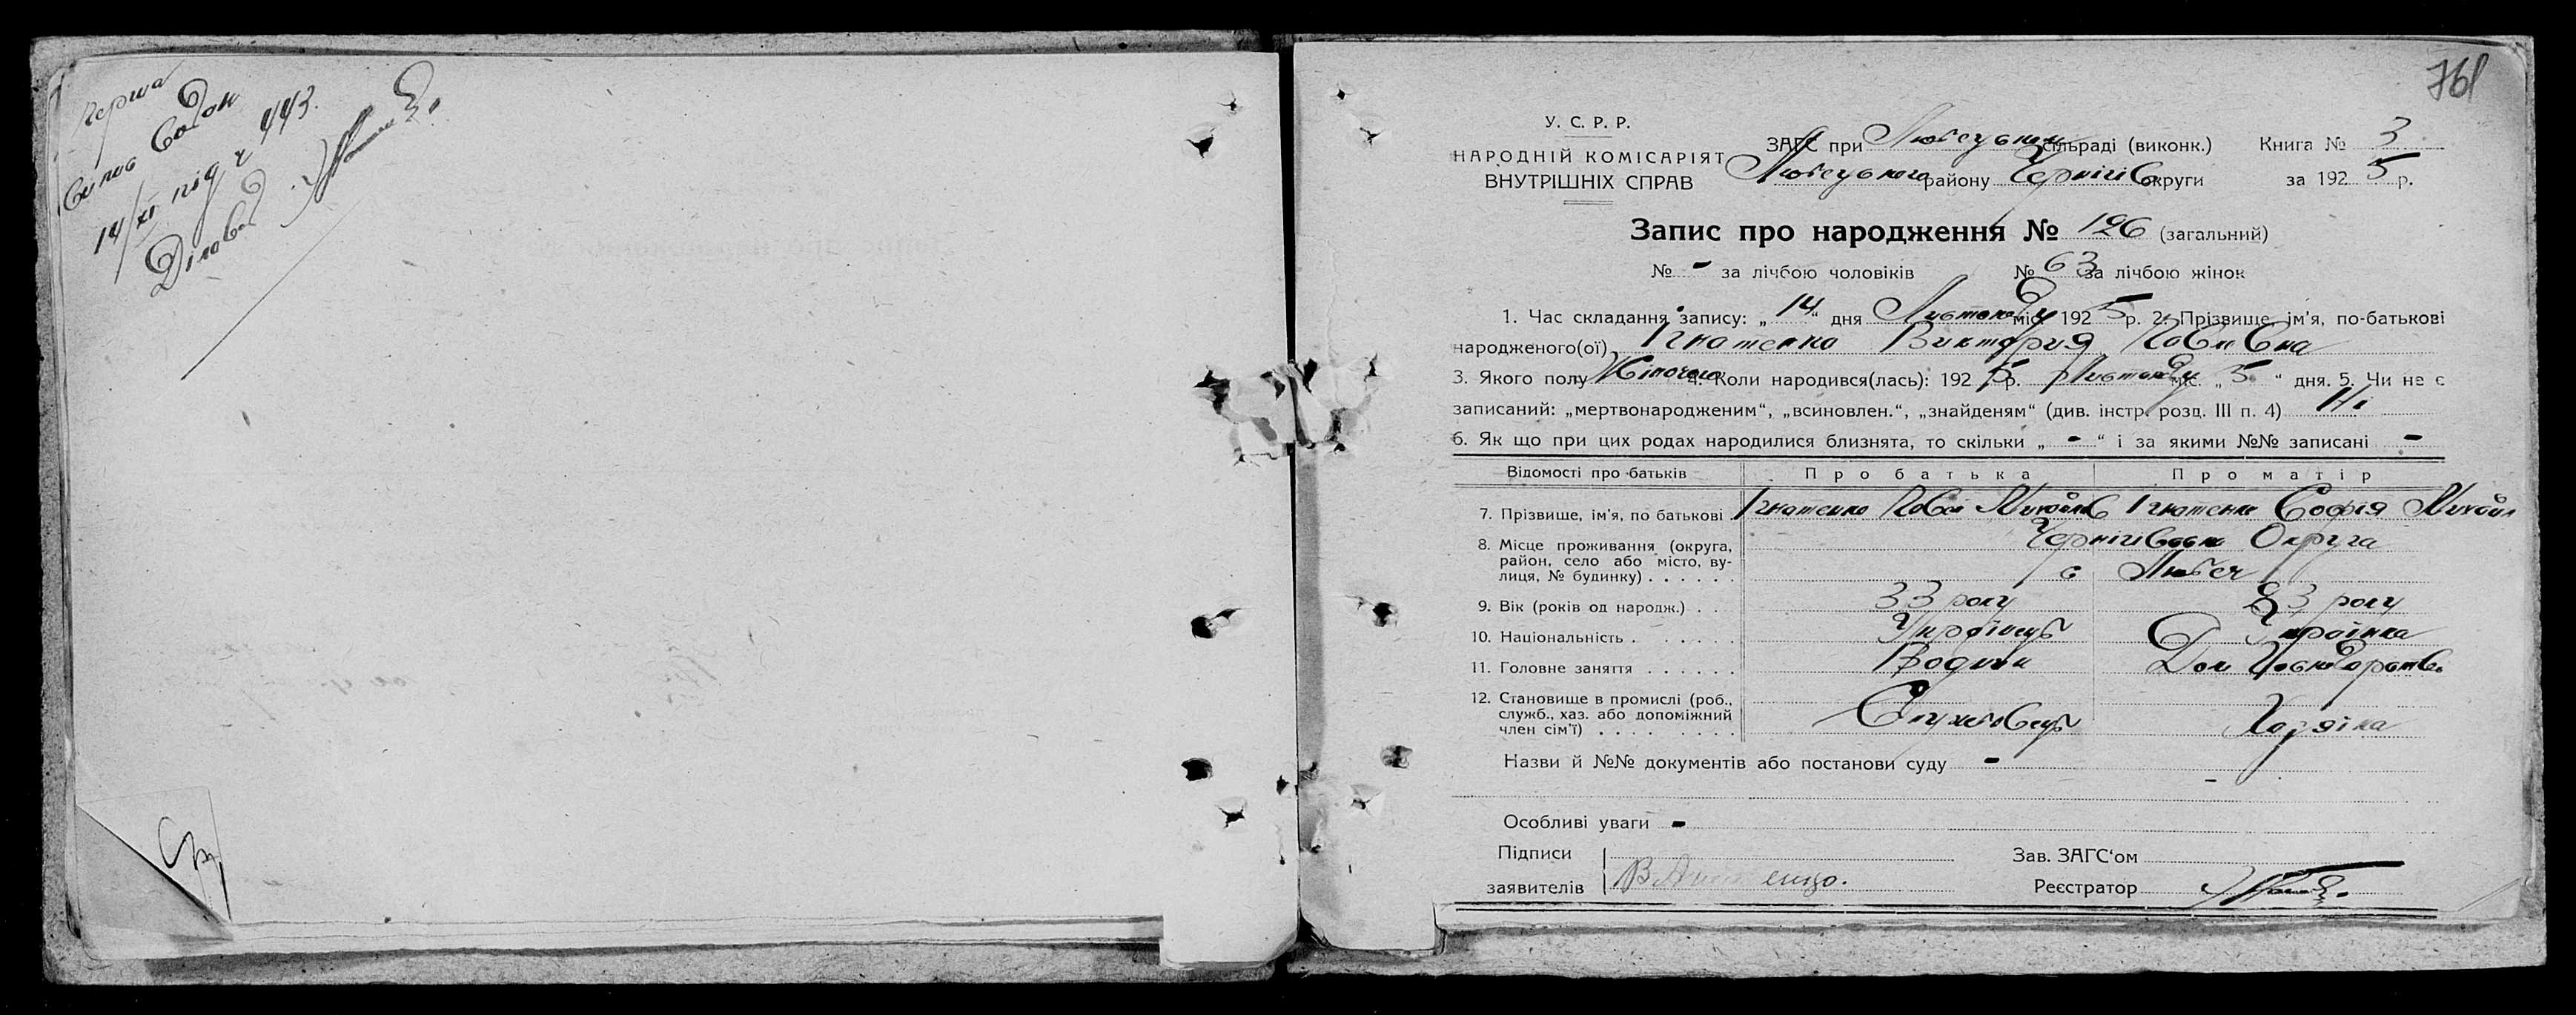 перша
14/XI під ч 443.
Діловод
761
У. С. Р. Р.
НАРОДНІЙ КОМІСАРІЯТ
ВНУТРІШНІХ СПРАВ
ЗАГС при Любецькій сільраді (виконк.) Книга № 3
Любецького району Чернігів округи за 1925 р.
Запис про народження № 126 (загальний)
№ - за лічбою чоловіків № 63 за лічбою жінок
1. Час складання запису: „14“ дня Листопаду міс. 1925 р. 2. Прізвище, ім'я, по-батькові
народженого(ої) Ігнатенко Виктория Павлівна
3. Якого полу Жіночого 4. Коли народився(лась): 1925 р. Листопаду міс. „5“ дня. 5. Чи не є
записаний: „мертвонародженим“, „всиновлен.“, „знайденям“ (див. інстр. розд. III п. 4) Ні
6. Як що при цих родах народилися близнята, то скільки „-“ і за якими №№ записані -
Відомості про батьків Про батька Про матір
7. Прізвище, ім'я, по батькові Ігнатенко Павло Михайлів Ігнатенко Софія Михайл
8. Місце проживання (округа, Чернігівська Округа
район, село або місто, ву-
лиця, № будинку) . . . . . . с Любеч
9. Вік (років од народж.) . . 33 року 23 року
10. Національність . . . . . . . Українець Українка
11. Головне заняття . . . . . . Дом Господарство
12. Становище в промислі (роб.,
служб., хаз. або допоміжний Службовець Хазяїка
член сім'ї) . . . . . . . . .
Назви й №№ документів або постанови суду -
Особливі уваги -
Підписи Зав. ЗАГС'ом
заявителів Реєстратор